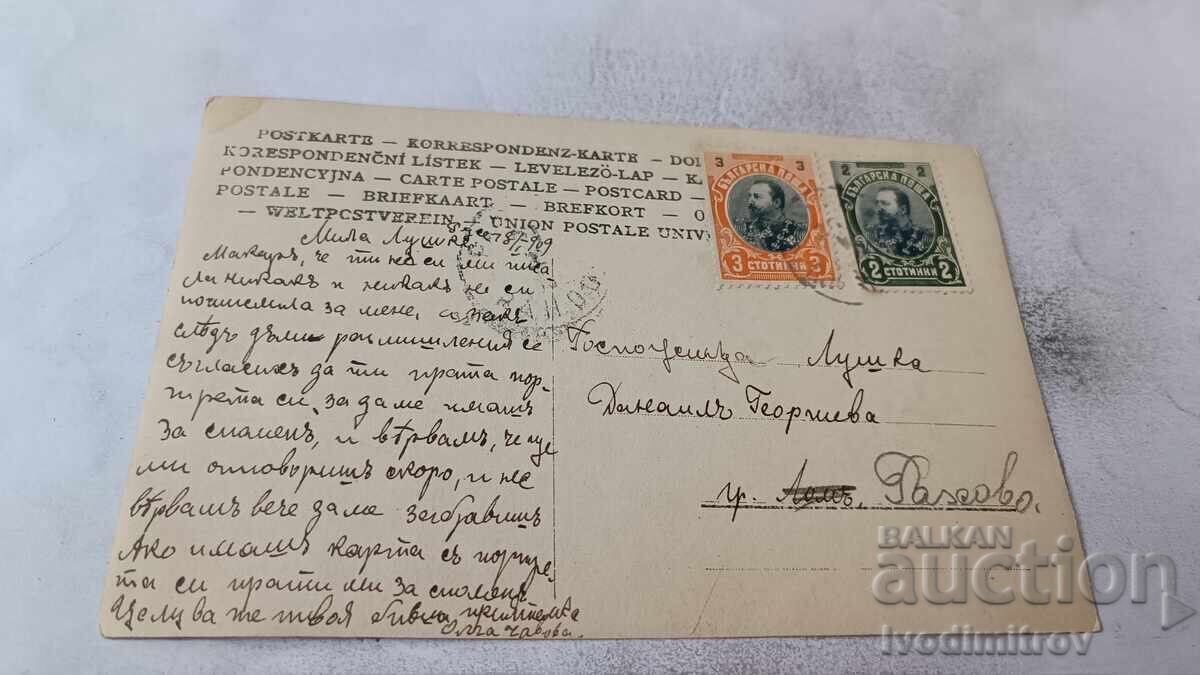 POSTKARTE — KORRESPONDENZ-KARTE — DOI
KORESPONDENČNÍ LÍSTEK — LEVELEZÖ-LAP — KA
PONDENCYJNA — CARTE POSTALE — POSTCARD —
POSTALE — BRIEFKAART — BREFKORT — O
— WELTPOSTVEREIN — UNION POSTALE UNIV
3 3
БЪЛГАРСКА ПОЩА
3 СТОТИНКИ 3
2 2
БЪЛГАРСКА ПОЩА
2 СТОТИНКИ 2
Мила Лушке,
Макаръ, че ти не си ми писа-
ла никакъ и никакъ не си
помислила за мене, но пакъ
слѣдъ дълги размишления се
съгласихъ да ти пратя пор-
трета си, за да ме имашъ
за споменъ, и вѣрвамъ, че ще
ми отговоришъ скоро, и не
вѣрвамъ вече да ме забравишъ
Ако имашъ карта съ портре-
та си прати ми за споменъ
Целува те твоя бивша приятелка
Олга
Госпожица Лушка
Данаилъ Георгиева
гр. Ломъ, Рахово.
BALKAN
auction
Ivodimitrov